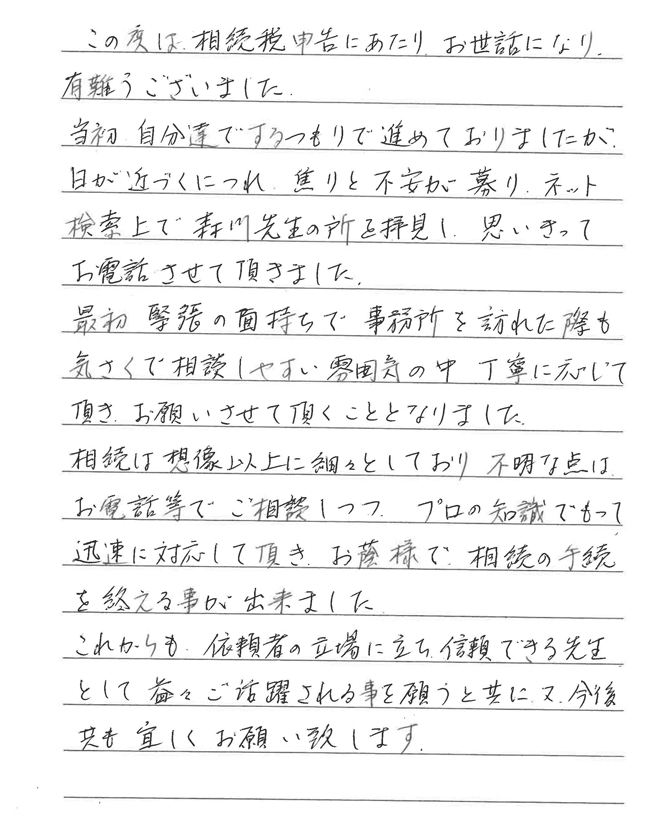 この度は、相続税申告にあたり、お世話になり、
有難うございました。
当初、自分達でするつもりで進めておりましたが、
日が近づくにつれ、焦りと不安が募り、ネット
検索上で森川先生の所を拝見し、思いきって
お電話させて頂きました。
最初、緊張の面持ちで事務所を訪れた際も
気さくで相談しやすい雰囲気の中、丁寧に応じて
頂き、お願いさせて頂くこととなりました。
相続は想像以上に細々としており、不明な点は、
お電話等でご相談しつつ、プロの知識でもって
迅速に対応して頂き、お蔭様で、相続の手続
を終える事が出来ました。
これからも、依頼者の立場に立ち、信頼できる先生
として益々ご活躍される事を願うと共に、又、今後
共も宜しくお願い致します。